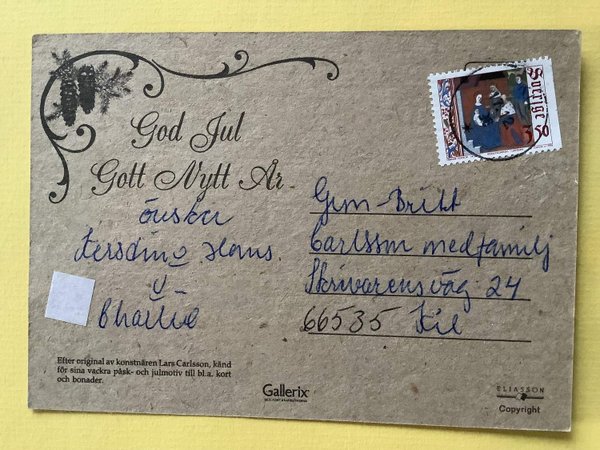 God Jul
Gott Nytt År
önskar
Hans
Charlie
Gun-Britt
Carlsson med familj
Skrivarensväg 24
66535 Kil
Sverige
3.50
Efter original av konstnären Lars Carlsson, känd
för sina vackra påsk- och julmotiv till bl.a. kort
och bonader.
Gallerix
ELIASSON
Copyright